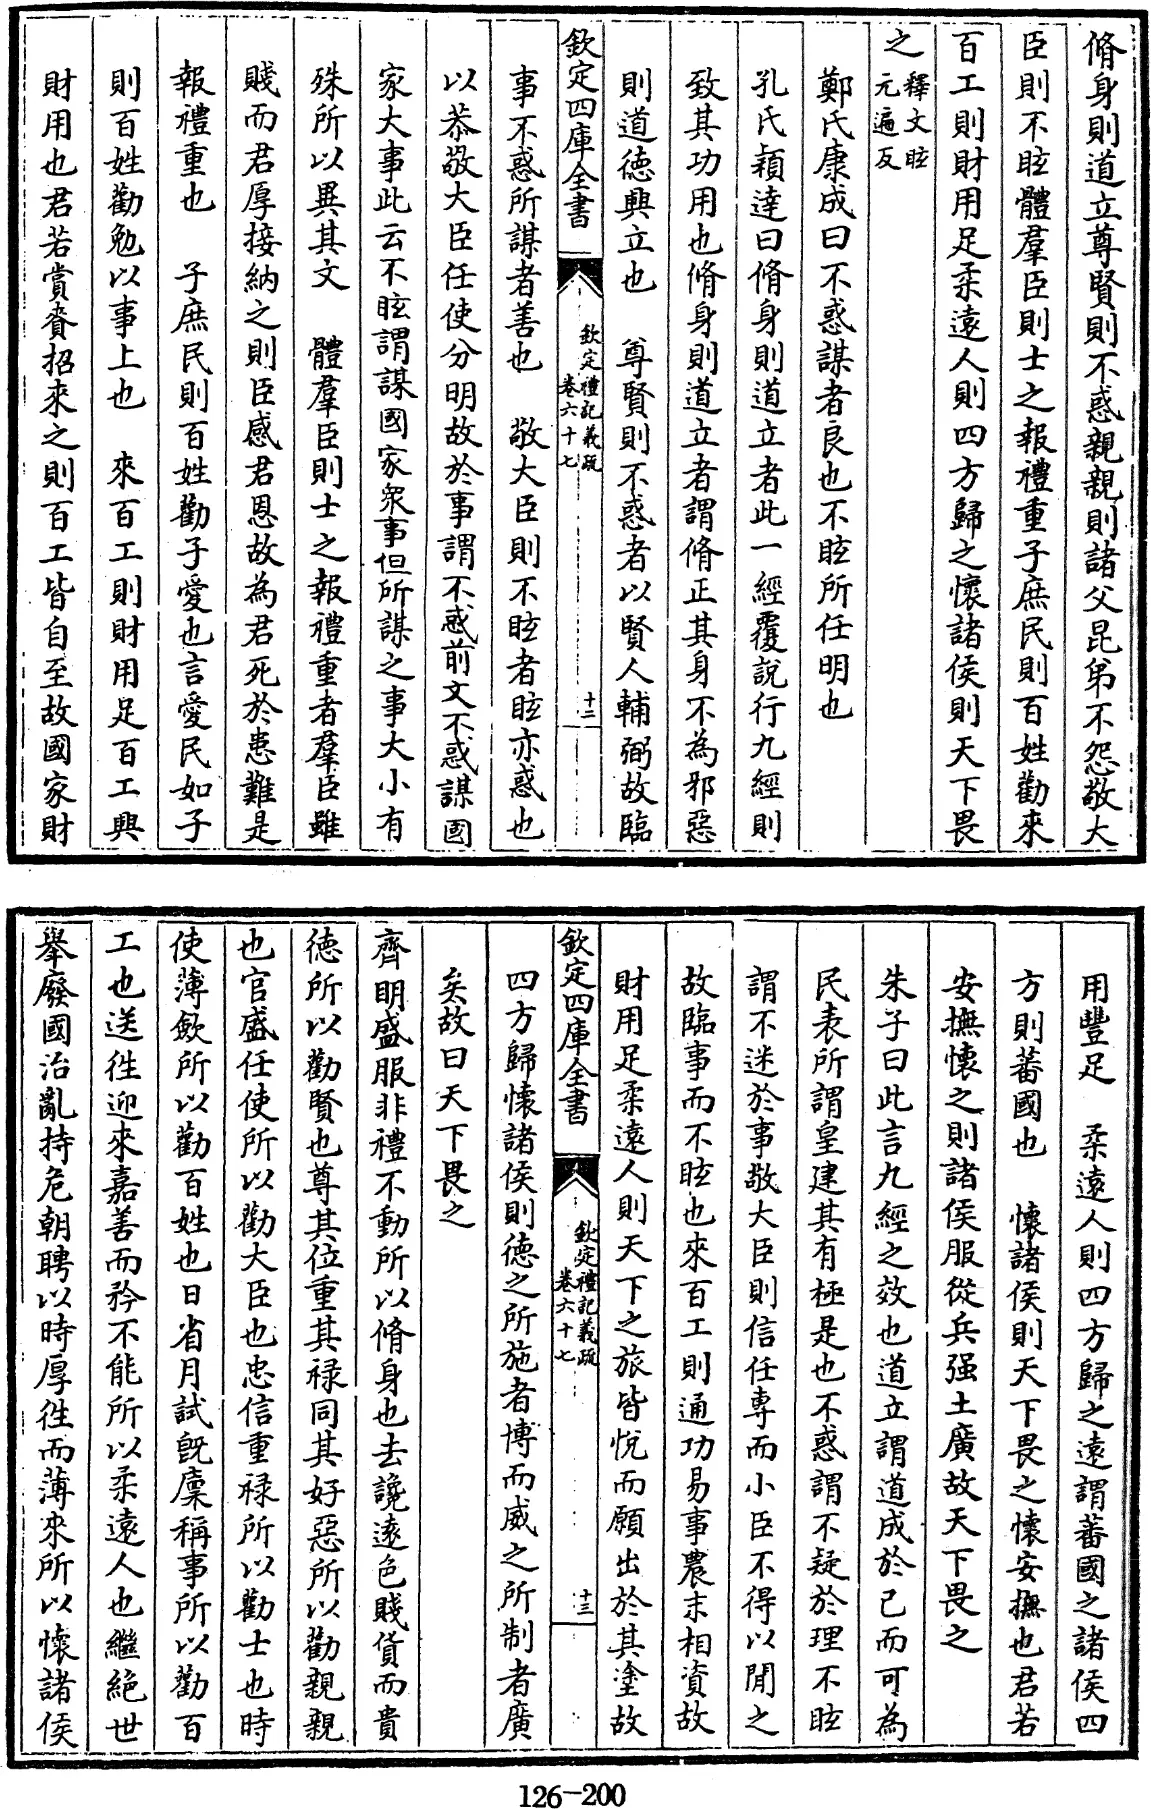 脩身則道立尊賢則不惑親親則諸父昆弟不怨敬大
臣則不眩體羣臣則士之報禮重子庶民則百姓勸來
百工則財用足柔遠人則四方歸之懷諸侯則天下畏
之釋文眩元遍反
鄭氏康成曰不惑謀者良也不眩所任明也
孔氏穎達曰脩身則道立者此一經覆說行九經則
致其功用也脩身則道立者謂脩正其身不為邪惡
則道德興立也 尊賢則不惑者以賢人輔弼故臨
欽定四庫全書
欽定禮記義疏
卷六十七
十二
事不惑所謀者善也 敬大臣則不眩者眩亦惑也
以恭敬大臣任使分明故於事謂不惑前文不惑謀國
家大事此云不眩謂謀國家衆事但所謀之事大小有
殊所以異其文 體羣臣則士之報禮重者羣臣雖
賤而君厚接納之則臣感君恩故為君死於患難是
報禮重也 子庶民則百姓勸子愛也言愛民如子
則百姓勸勉以事上也 來百工則財用足百工興
財用也君若賞賚招來之則百工皆自至故國家財
用豐足 柔遠人則四方歸之遠謂蕃國之諸侯四
方則蕃國也 懷諸侯則天下畏之懷安撫也君若
安撫懷之則諸侯服從兵强土廣故天下畏之
朱子曰此言九經之效也道立謂道成於己而可為
民表所謂皇建其有極是也不惑謂不疑於理不眩
謂不迷於事敬大臣則信任専而小臣不得以間之
故臨事而不眩也來百工則通功易事農末相資故
財用足柔遠人則天下之旅皆悅而願出於其塗故
欽定四庫全書
欽定禮記義疏
卷六十七
十三
四方歸懷諸侯則德之所施者博而威之所制者廣
矣故曰天下畏之
齊明盛服非禮不動所以脩身也去讒遠色賤貨而貴
德所以勸賢也尊其位重其祿同其好惡所以勸親親
也官盛任使所以勸大臣也忠信重祿所以勸士也時
使薄斂所以勸百姓也日省月試既廩稱事所以勸百
工也送徃迎來嘉善而矜不能所以柔遠人也繼絕世
舉廢國治亂持危朝聘以時厚徃而薄來所以懷諸侯
126-200